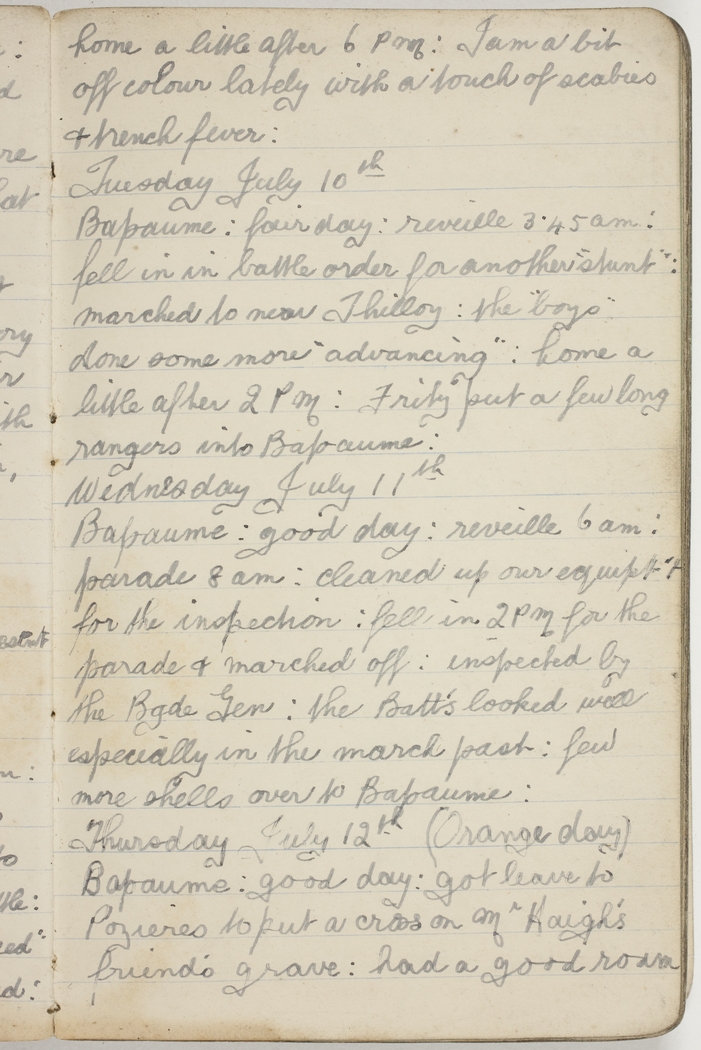 home a little after 6 P m: I am a bit
off colour lately with a touch of scabies
& trench fever:
Tuesday July 10th
Bapaume: fair day: reveille 3.45 am:
fell in in battle order for another "stunt":
marched to near Thilloy: the "boys"
done some more "advancing": home a
little after 2 P m: "Fritz" put a few long
rangers into Bapaume:
Wednesday July 11th
Bapaume: good day: reveille 6 am:
parade 8 am: cleaned up our equipt
for the inspection: fell in 2 P m for the
parade & marched off: inspected by
the Bgde Gen: the Batt's looked well
especially in the march past: few
more shells over to Bapaume:
Thursday July 12th (Orange day)
Bapaume: good day: got leave to
Pozieres to put a cross on Mr Haigh's
friend's grave: had a good roam